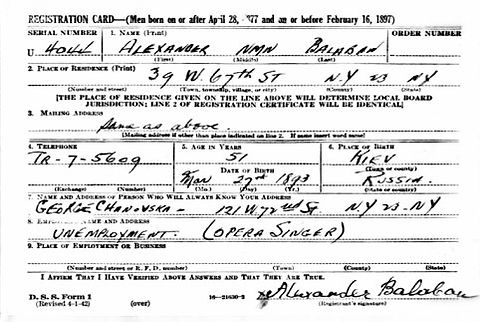 REGISTRATION CARD—(Men born on or after April 28, 1877 and on or before February 16, 1897)
SERIAL NUMBER 1. NAME (Print) ORDER NUMBER
U ALEXANDER NMN BALABAN
(First) (Middle) (Last)
2. PLACE OF RESIDENCE (Print)
39 W. 67th ST N.Y 23 NY
(Number and street) (Town, township, village, or city) (County) (State)
[THE PLACE OF RESIDENCE GIVEN ON THE LINE ABOVE WILL DETERMINE LOCAL BOARD
JURISDICTION; LINE 2 OF REGISTRATION CERTIFICATE WILL BE IDENTICAL]
3. MAILING ADDRESS
Same as above.
[Mailing address if other than place indicated on line 2. If same insert word same]
4. TELEPHONE 5. AGE IN YEARS 6. PLACE OF BIRTH
TR-7-5609 51 KIEV
DATE OF BIRTH (Town or county)
Mar 27th 1893 RUSSIA
(Exchange) (Number) (Mo.) (Day) (Yr.) (State or country)
7. NAME AND ADDRESS OF PERSON WHO WILL ALWAYS KNOW YOUR ADDRESS
GEORGE 121 W. 72nd St N.Y 23-NY
8. EMPLOYER'S NAME AND ADDRESS
UNEMPLOYMENT. (OPERA SINGER)
9. PLACE OF EMPLOYMENT OR BUSINESS
(Number and street or R. F. D. number) (Town) (County) (State)
I AFFIRM THAT I HAVE VERIFIED ABOVE ANSWERS AND THAT THEY ARE TRUE.
D. S. S. Form 1
(Revised 4-1-42) (over) 16—21630-2 Alexander Balaban
(Registrant's signature)